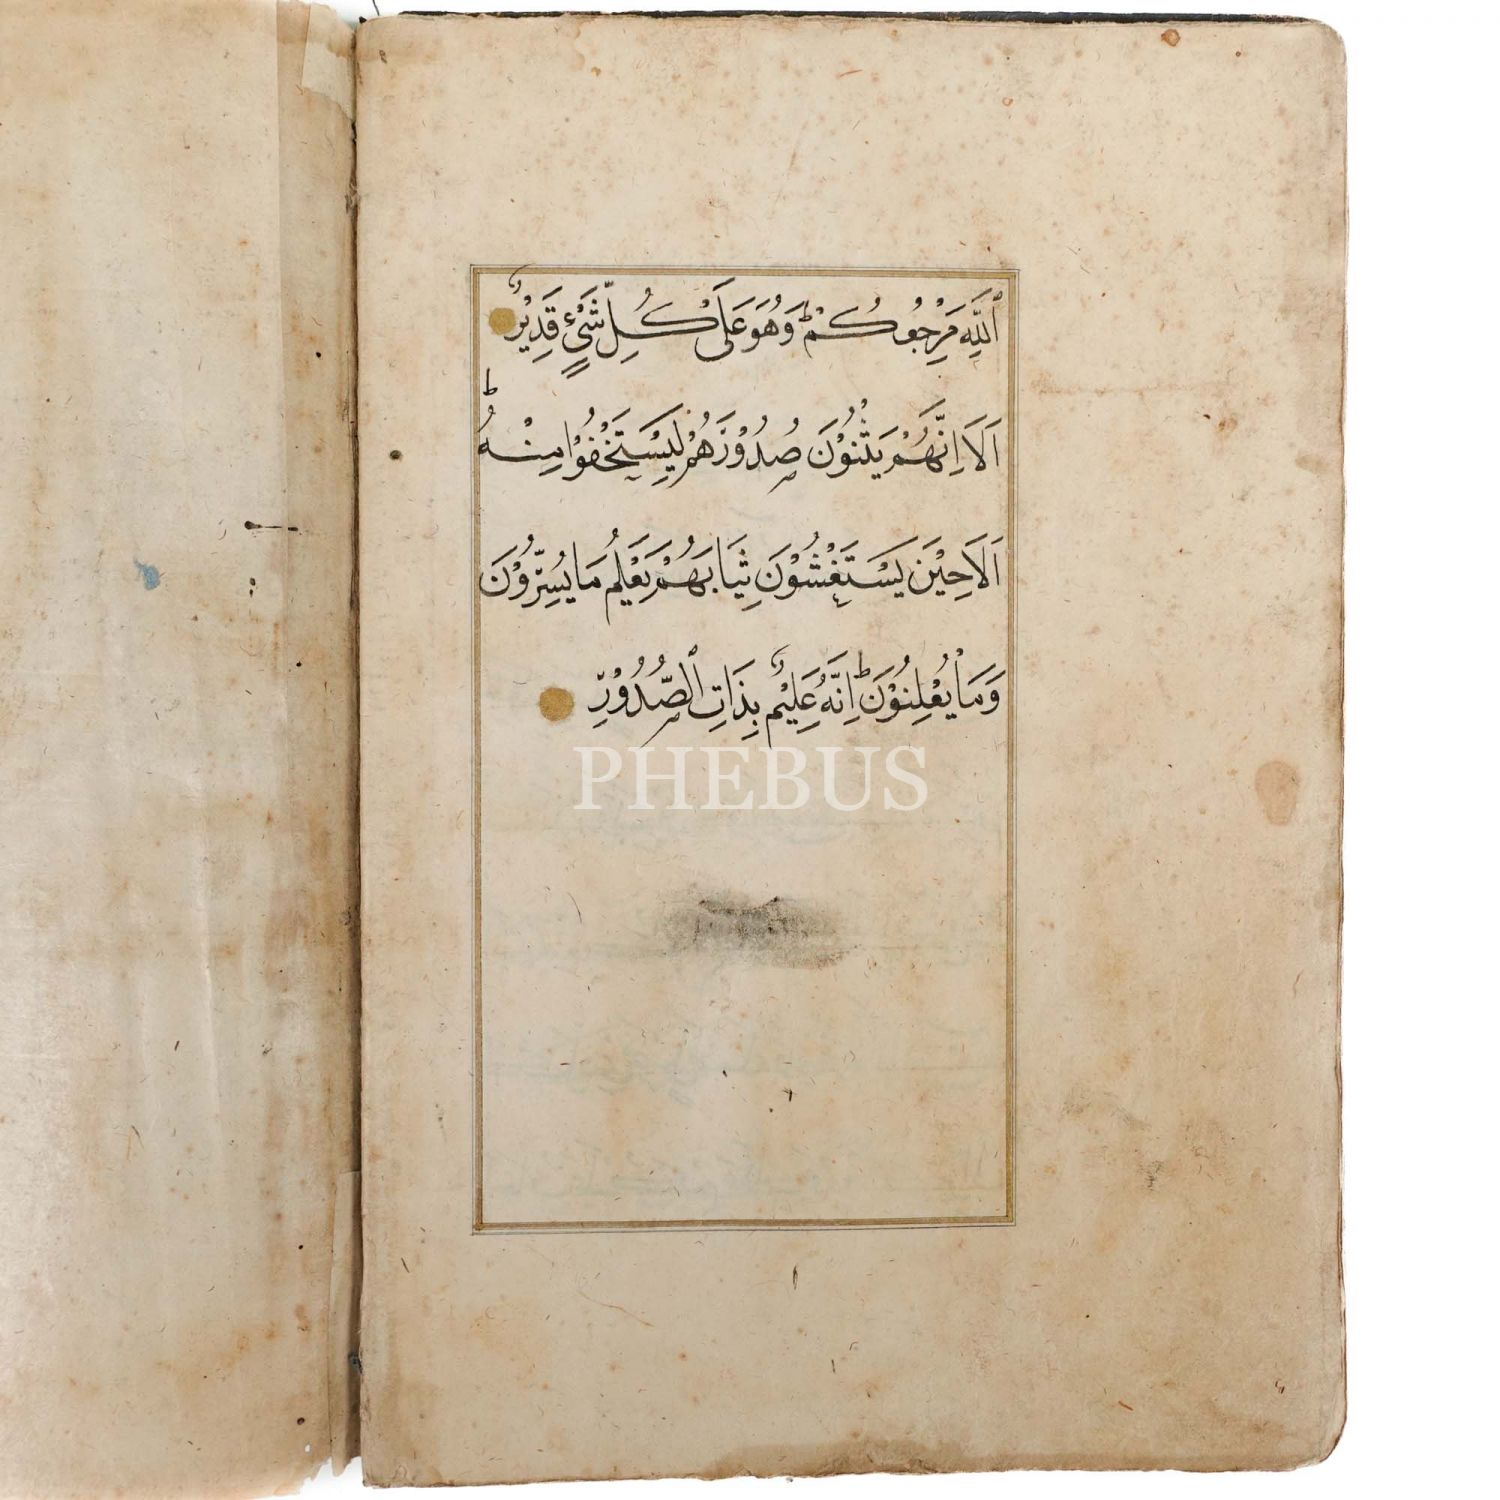 ٱللَّهِ مَرْجِعُكُمْ ۖ وَهُوَ عَلَى كُلِّ شَىْءٍ قَدِيْرٌ
اَلَا اِنَّهُمْ يَثْنُوْنَ صُدُوْرَهُمْ لِيَسْتَخْفُوْا مِنْهُ ۖ
اَلَا حِيْنَ يَسْتَغْشُوْنَ ثِيَابَهُمْ يَعْلَمُ مَا يُسِرُّوْنَ
وَمَا يُعْلِنُوْنَ ۖ اِنَّهُ عَلِيْمٌ بِذَاتِ ٱلصُّدُوْرِ
PHEBUS